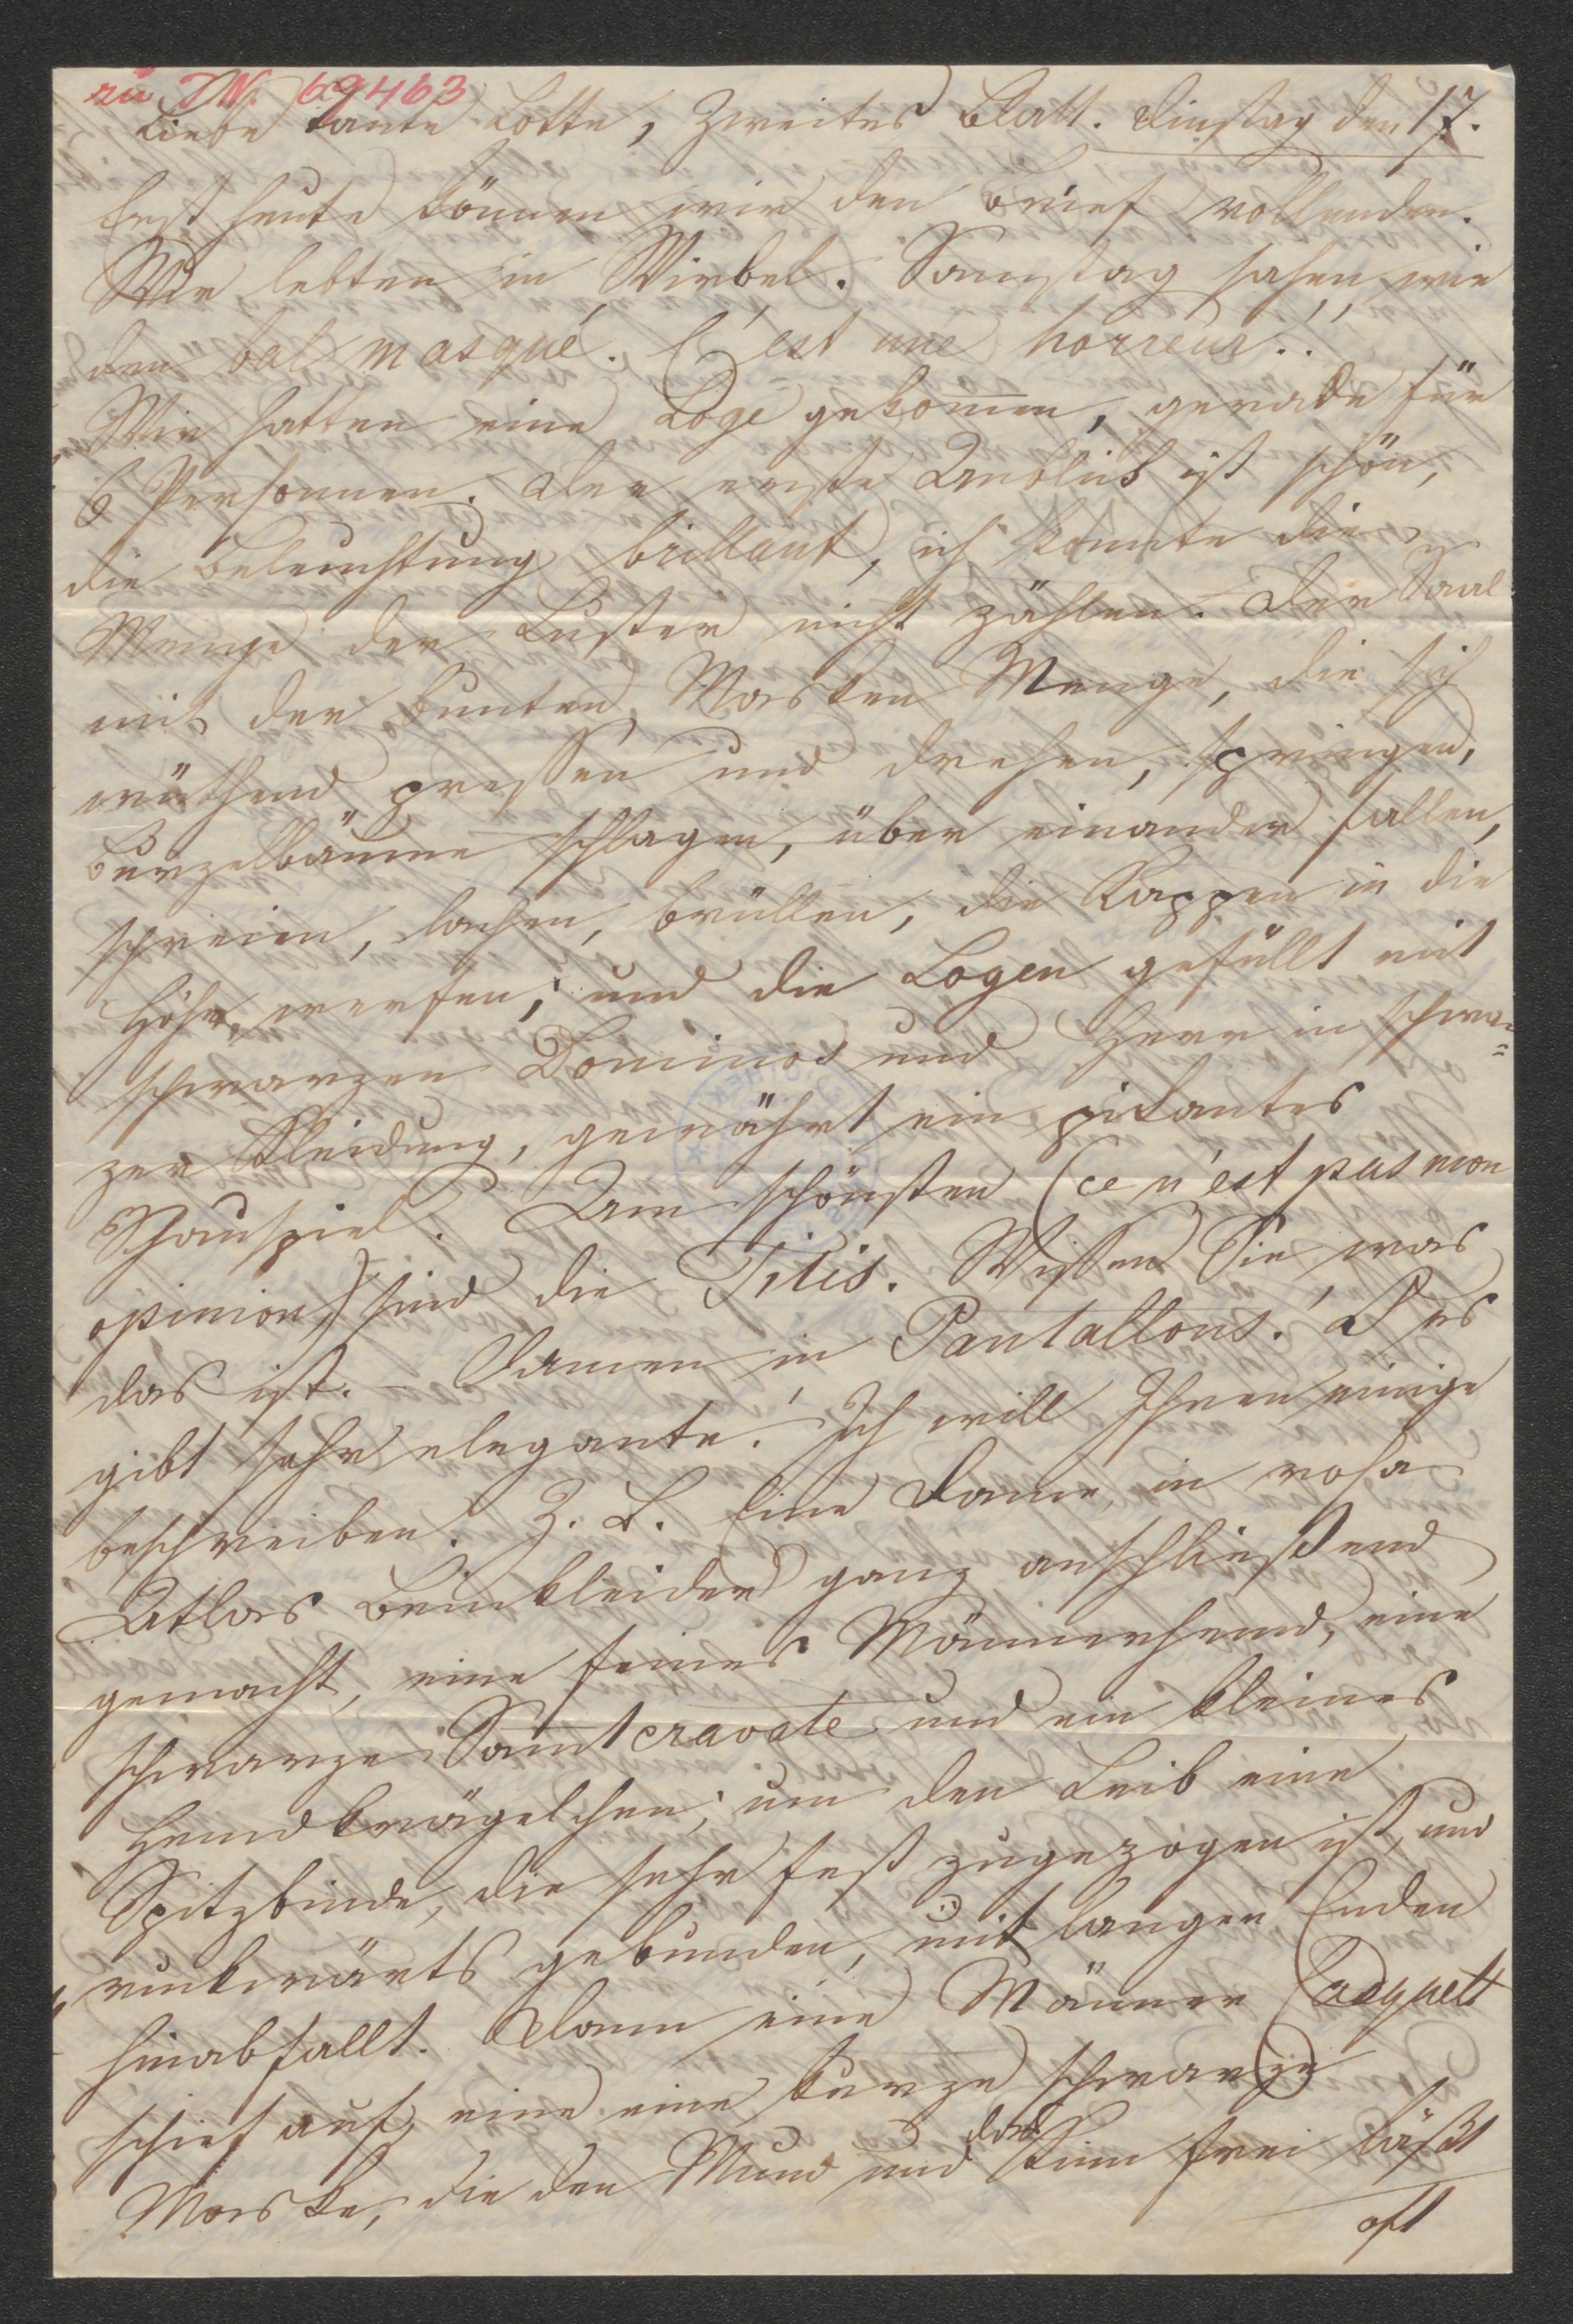 zu JN. 69463
Liebe Tante Lotte, Zweites Blatt. Dinstag den 17.
Erst heute können wir den Brief vollenden.
Wir lebten in Wirbel. Samstag sahen wir
den bal masqué. C'est une horreur!!
Wir hatten eine Loge gekommen, gerade für
6 Personnen. Der erste Anblick ist schön,
die Beleuchtung brillant, ich konnte die
Menge der Luster nicht zählen. Der Saal
mit der bunten Masken Menge, die sich
wüthend pressen und drehen, springen,
Burzelbäume schlagen, über einander fallen,
schreien, lachen, brüllen, die Kappen in die
Höhe werfen; und die Logen gefüllt mit
schwarzen Dominos und Herr in schwar=
zer Kleidung, gewährt ein pikantes
Schauspiel. Am schönsten (ce n'est pas mon
opinion,) sind die Titis. Wissen Sie, was
das ist. – Damen in Pantallons! O es
gibt sehr elegante! Ich will Ihnen einige
beschreiben. Z. B. Eine Dame in rosa
Atlas Beinkleider ganz anschließend
gemacht, eine feines Männerhemd, eine
schwarze Samtcravate und ein kleines
Hemdkrägelchen; um den Leib eine
Spitzbinde, die sehr fest zugezogen ist, und
rückwärts gebunden, mit langen Enden
hinabfallt. Dann eine Männer Casquett
schief auf, eine eine kurze schwarze
Maske, die den Mund und das Kinn frei läßt
oft